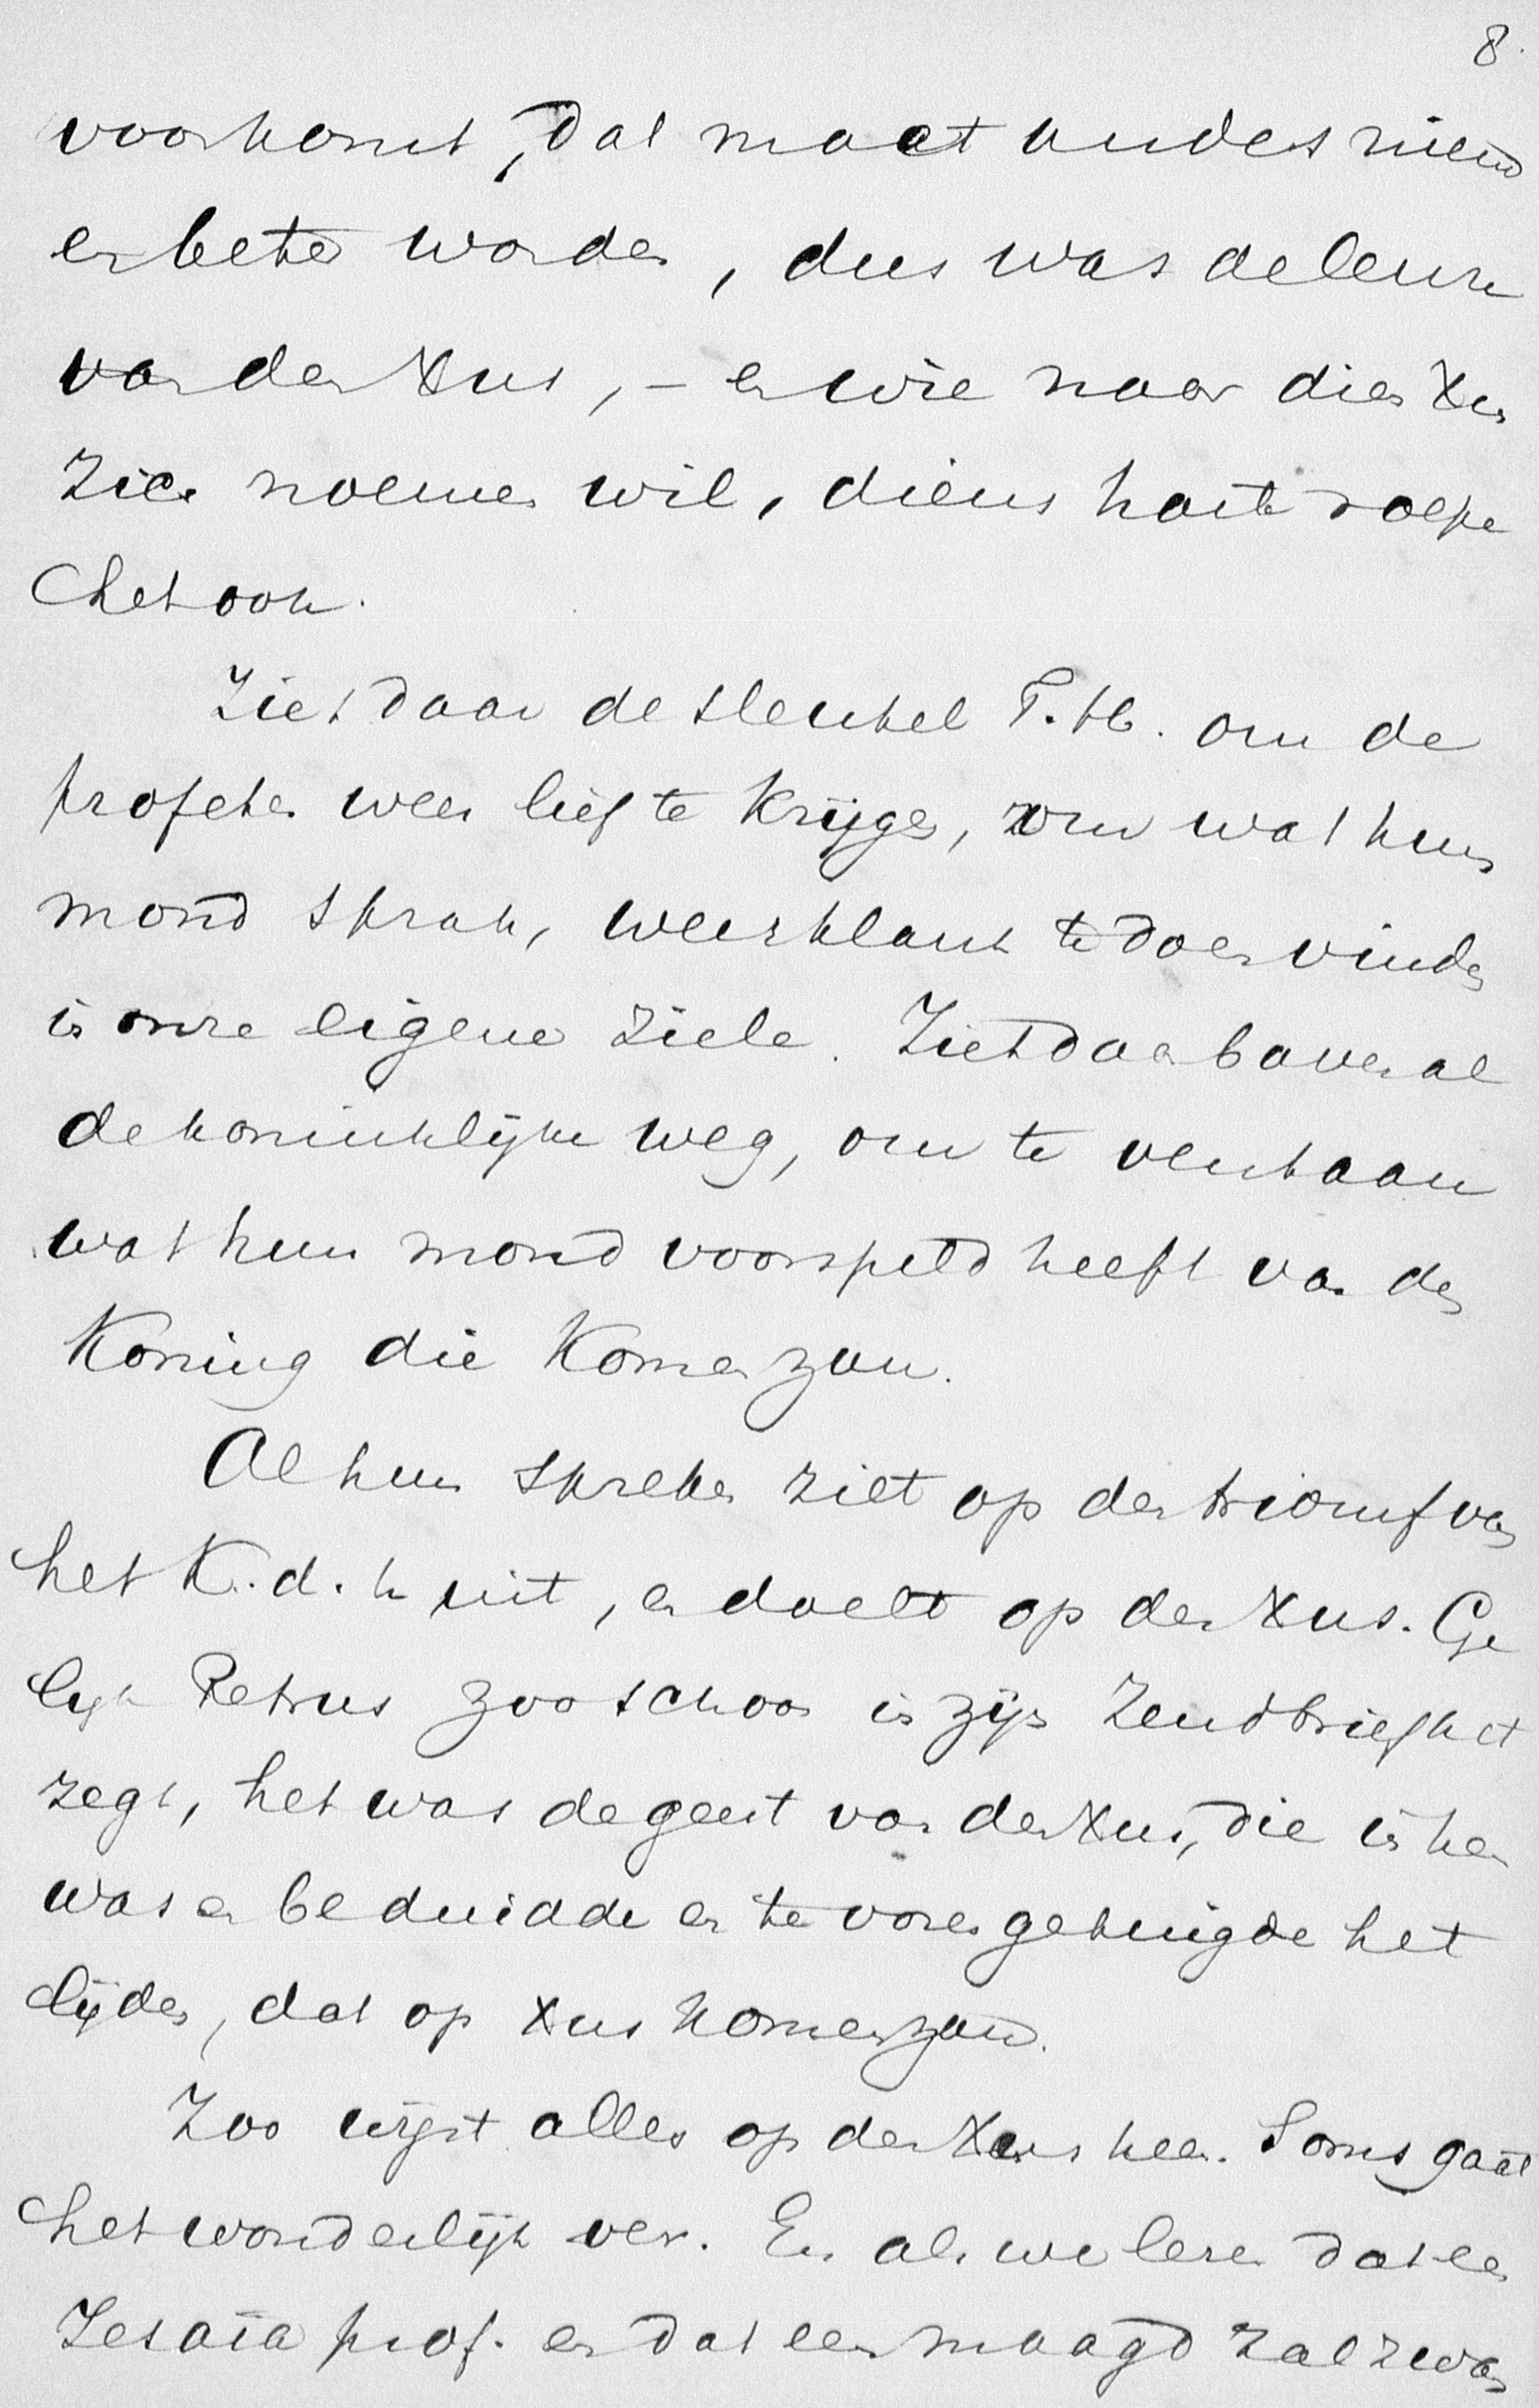 8.
voorkomt, dat moet anders nieuw
en beter worden, dus was de leuze
van den Xus, – en wie naar dien Xus
zich noemen wil, diens harte roepe
het ook.
Ziet daar de sleutel T. H. om de
profeten weer lief te krijgen, om wat hun
mond sprak, weerklank te doen vinden
in onze eigene ziele. Ziet daar bovenal
de koninklijke weg, om te verstaan
wat hun mond voorspeld heeft van den
Koning die komen zou.
Al hun spreken ziet op den triomf van
het K. d. h uit, en doelt op den Xus. Ge
lijk Petrus zoo schoon in zijn zendbrief het
zegt, het was de geest van den Xus, die in hen
was en beduidde en te voren getuigde het
lijden, dat op Xus komen zou.
Zoo wijst alles op den Xus heen. Soms gaat
het wonderlijk ver. En als we lezen dat een
Jesaia prof. en dat een maagd zal zwan